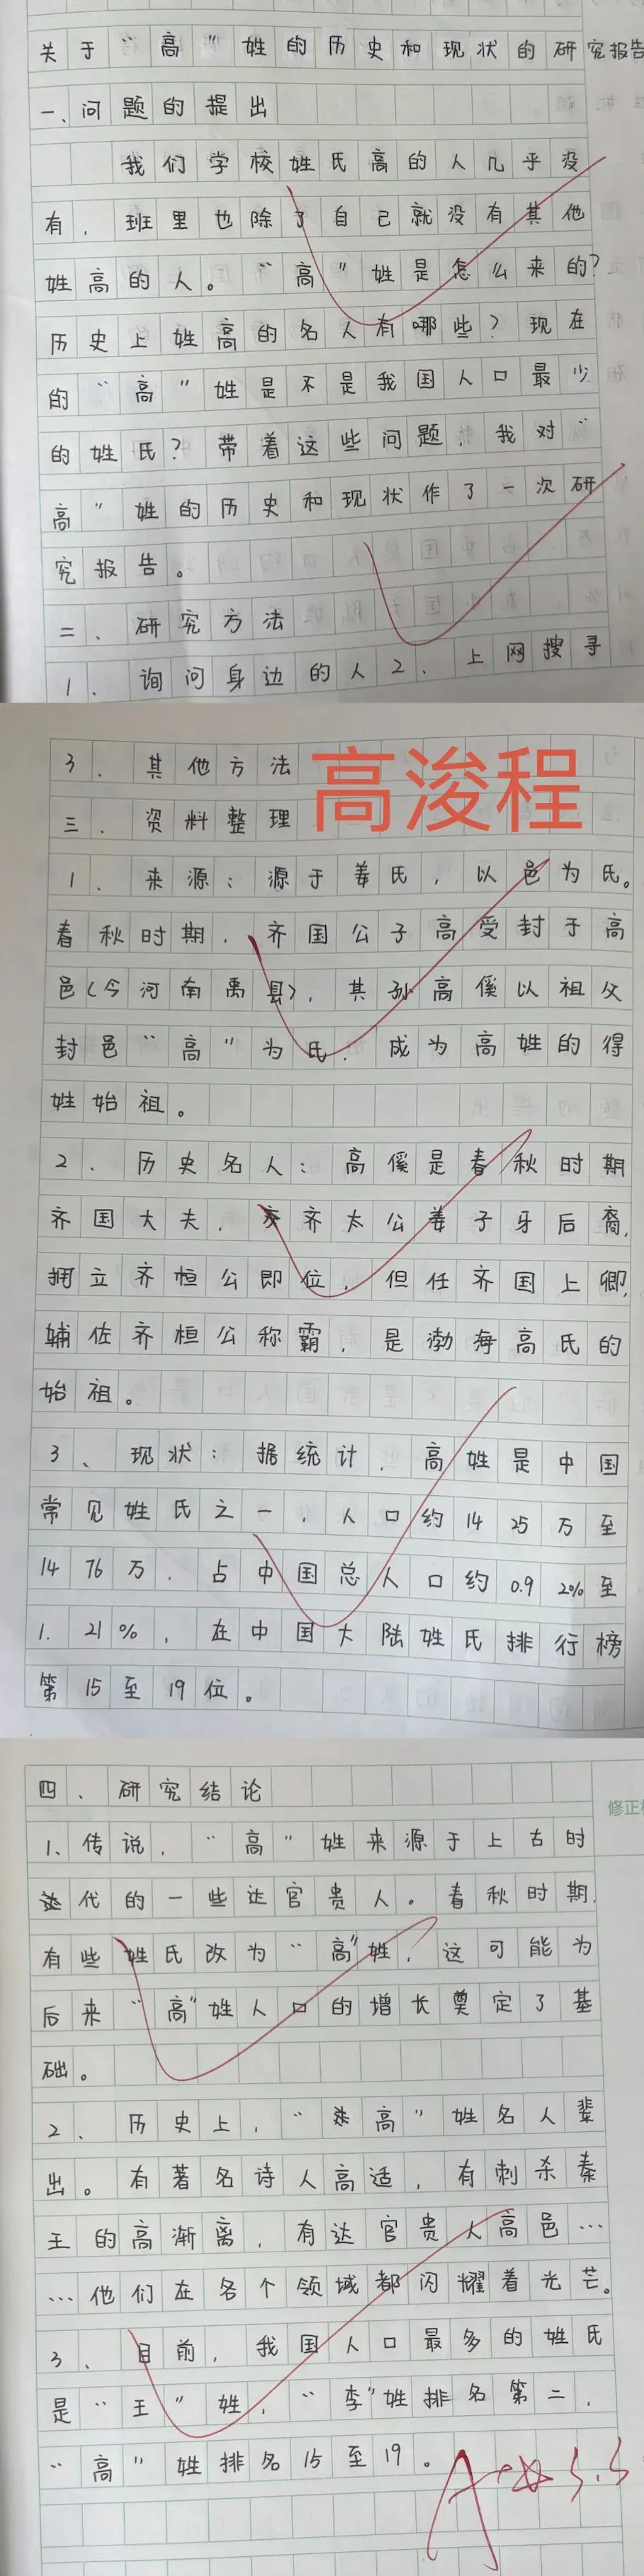 关于“高”姓的历史和现状的研究报告
一、问题的提出
我们学校姓氏高的人几乎没
有，班里也除了自己就没有其他
姓高的人。“高”姓是怎么来的？
历史上姓高的名人有哪些？现在
的“高”姓是不是我国人口最少
的姓氏？带着这些问题，我对“
高”姓的历史和现状作了一次研
究报告。
二、研究方法
1、询问身边的人2、上网搜寻
3、其他方法
高浚程
三、资料整理
1、来源：源于姜氏，以邑为氏。
春秋时期，齐国公子高受封于高
邑(今河南禹县)，其孙高傒以祖父
封邑“高”为氏，成为高姓的得
姓始祖。
2、历史名人：高傒是春秋时期
齐国大夫，齐太公姜子牙后裔，
拥立齐恒公即位，但任齐国上卿，
辅佐齐桓公称霸，是渤海高氏的
始祖。
3、现状：据统计，高姓是中国
常见姓氏之一，人口约1425万至
1476万，占中国总人口约0.92%至
1.21%，在中国大陆姓氏排行榜
第15至19位。
四、研究结论
修正
1、传说，“高”姓来源于上古时
代的一些达官贵人。春秋时期，
有些姓氏改为“高”姓，这可能为
后来“高”姓人口的增长奠定了基
础。
2、历史上，“高”姓名人辈
出。有著名诗人高适，有刺杀秦
王的高渐离，有达官贵人高邑…
…他们在各个领域都闪耀着光芒。
3、目前，我国人口最多的姓氏
是“王”姓，“李”姓排名第二，
“高”姓排名15至19。
A+☆ 5.5